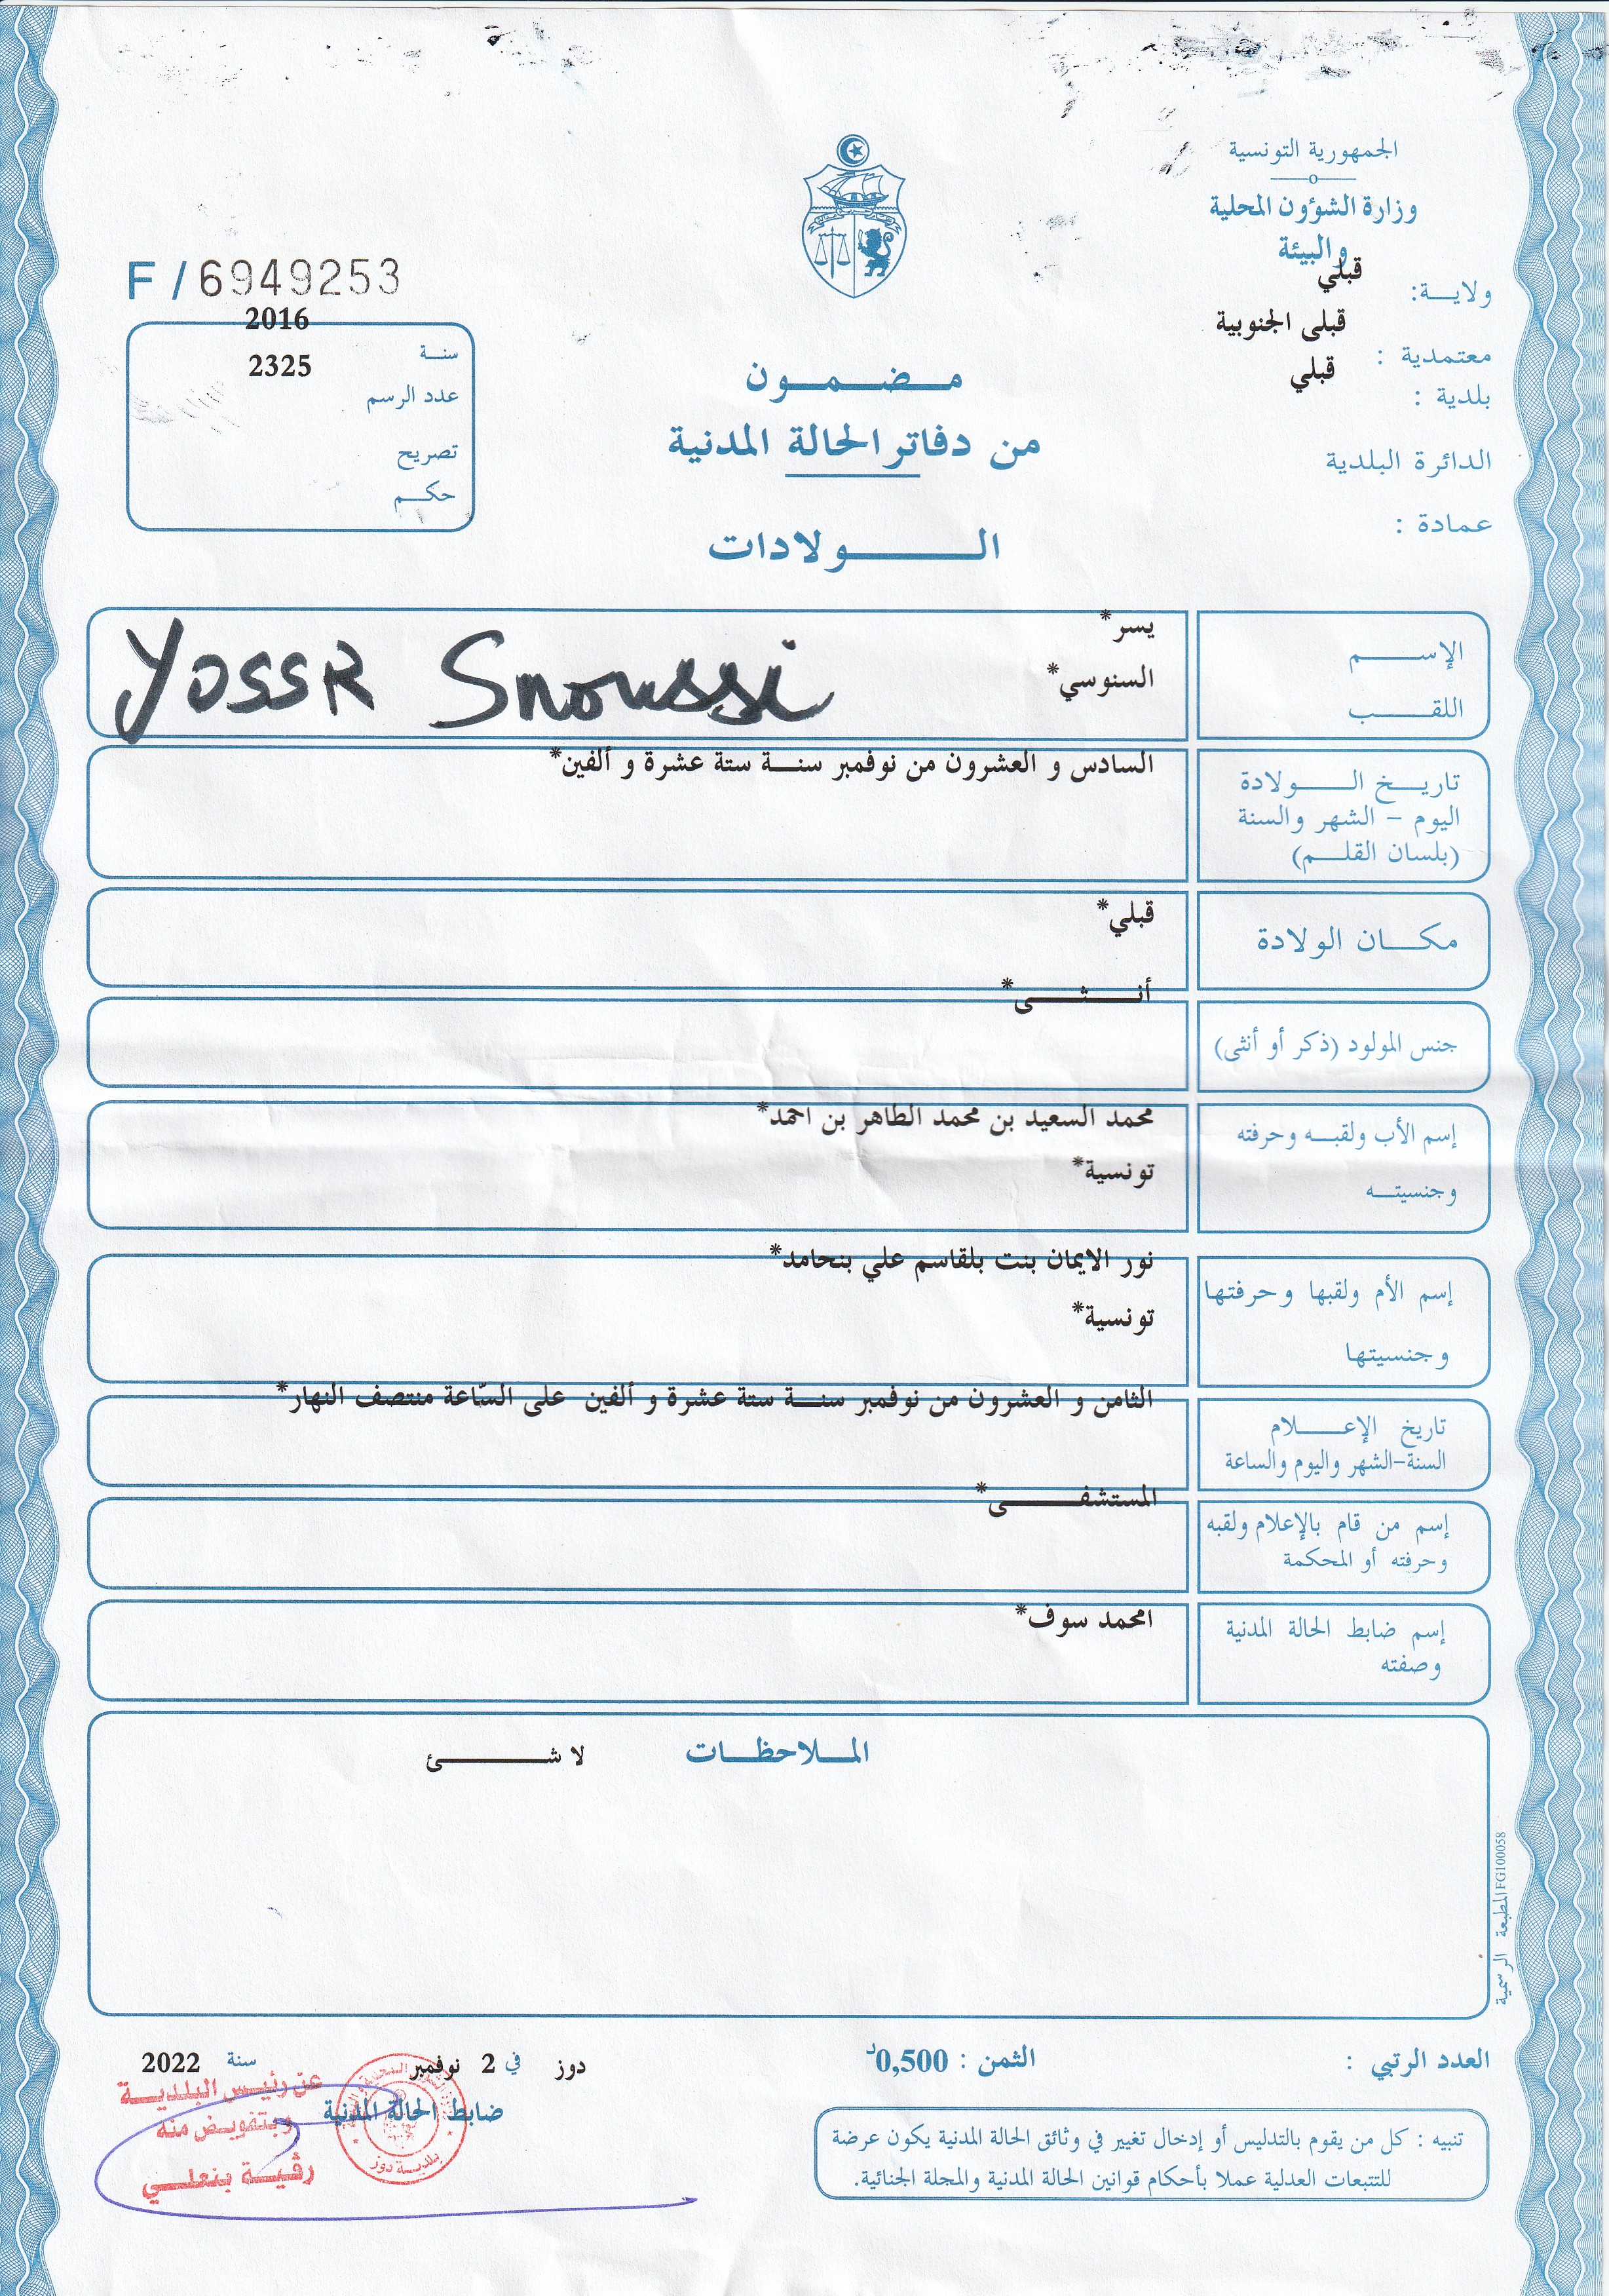 الجمهورية التونسية
وزارة الشؤون المحلية
والبيئة
ولايـــة: قبلي
معتمدية : قبلى الجنوبية
بلدية : قبلي
الدائرة البلدية
عمادة :
F / 6949253
سنـــة 2016
عدد الرسم 2325
تصريح
حكـــم
مـــضـــمـــون
من دفاتر الحالة المدنية
الـــــولادات
الإســـــم يسر*
اللقـــــب السنوسي*
YOSSR Snoussi
تاريـــخ الـــــولادة السادس و العشرون من نوفمبر سنـــة ستة عشرة و ألفين*
اليوم – الشهر والسنة
(بلسان القلـــم)
مكـــان الولادة قبلي*
جنس المولود (ذكر أو أنثى) أنـــثـــى*
إسم الأب ولقبـــه وحرفته محمد السعيد بن محمد الطاهر بن احمد*
وجنسيتـــه تونسية*
إسم الأم ولقبها وحرفتها نور الايمان بنت بلقاسم علي بنحامد*
وجنسيتها تونسية*
تاريخ الإعـــــلام الثامن و العشرون من نوفمبر سنـــة ستة عشرة و ألفين على السّاعة منتصف النهار*
السنة-الشهر واليوم والساعة
إسم من قام بالإعلام ولقبه المستشفـــــى*
وحرفته أو المحكمة
إسم ضابط الحالة المدنية امحمد سوف*
وصفته
المـــلاحظـــات لا شـــــئ
المطبعة الرسمية FG100058
العدد الرتبي :
الثمن : 0,500د
دوز في 2 نوفمبر سنة 2022
ضابط الحالة المدنية
عن رئيس البلديـــة
وبتفويض منه
رقيـــة بنعلـــي
بلديـــة دوز
تنبيه : كل من يقوم بالتدليس أو إدخال تغيير في وثائق الحالة المدنية يكون عرضة
للتتبعات العدلية عملا بأحكام قوانين الحالة المدنية والمجلة الجنائية.